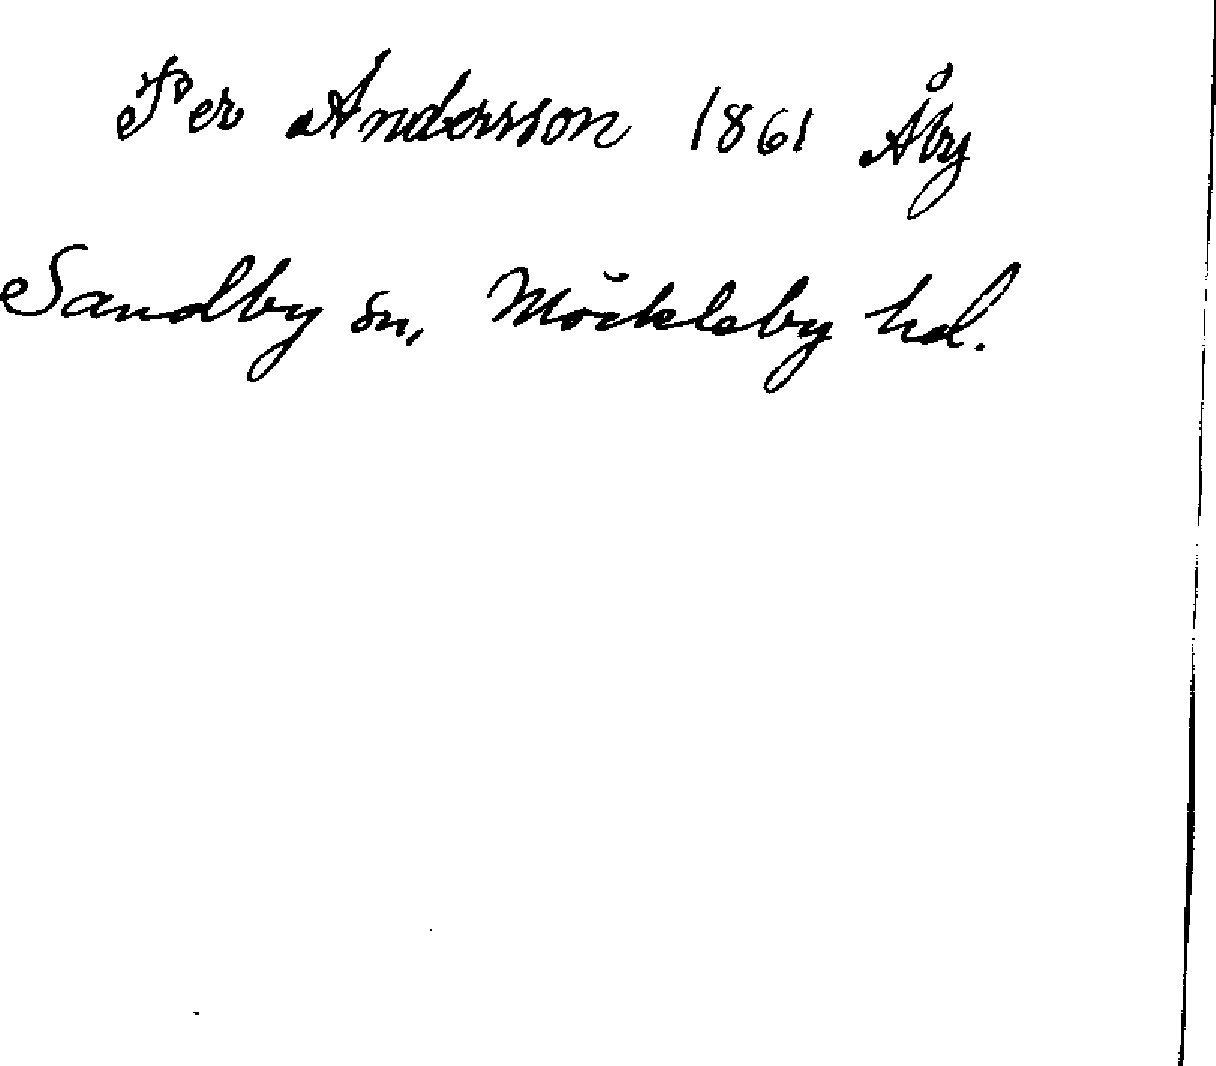 Per Andersson 1861 Åby
Sandby sn, Möckleby hd.